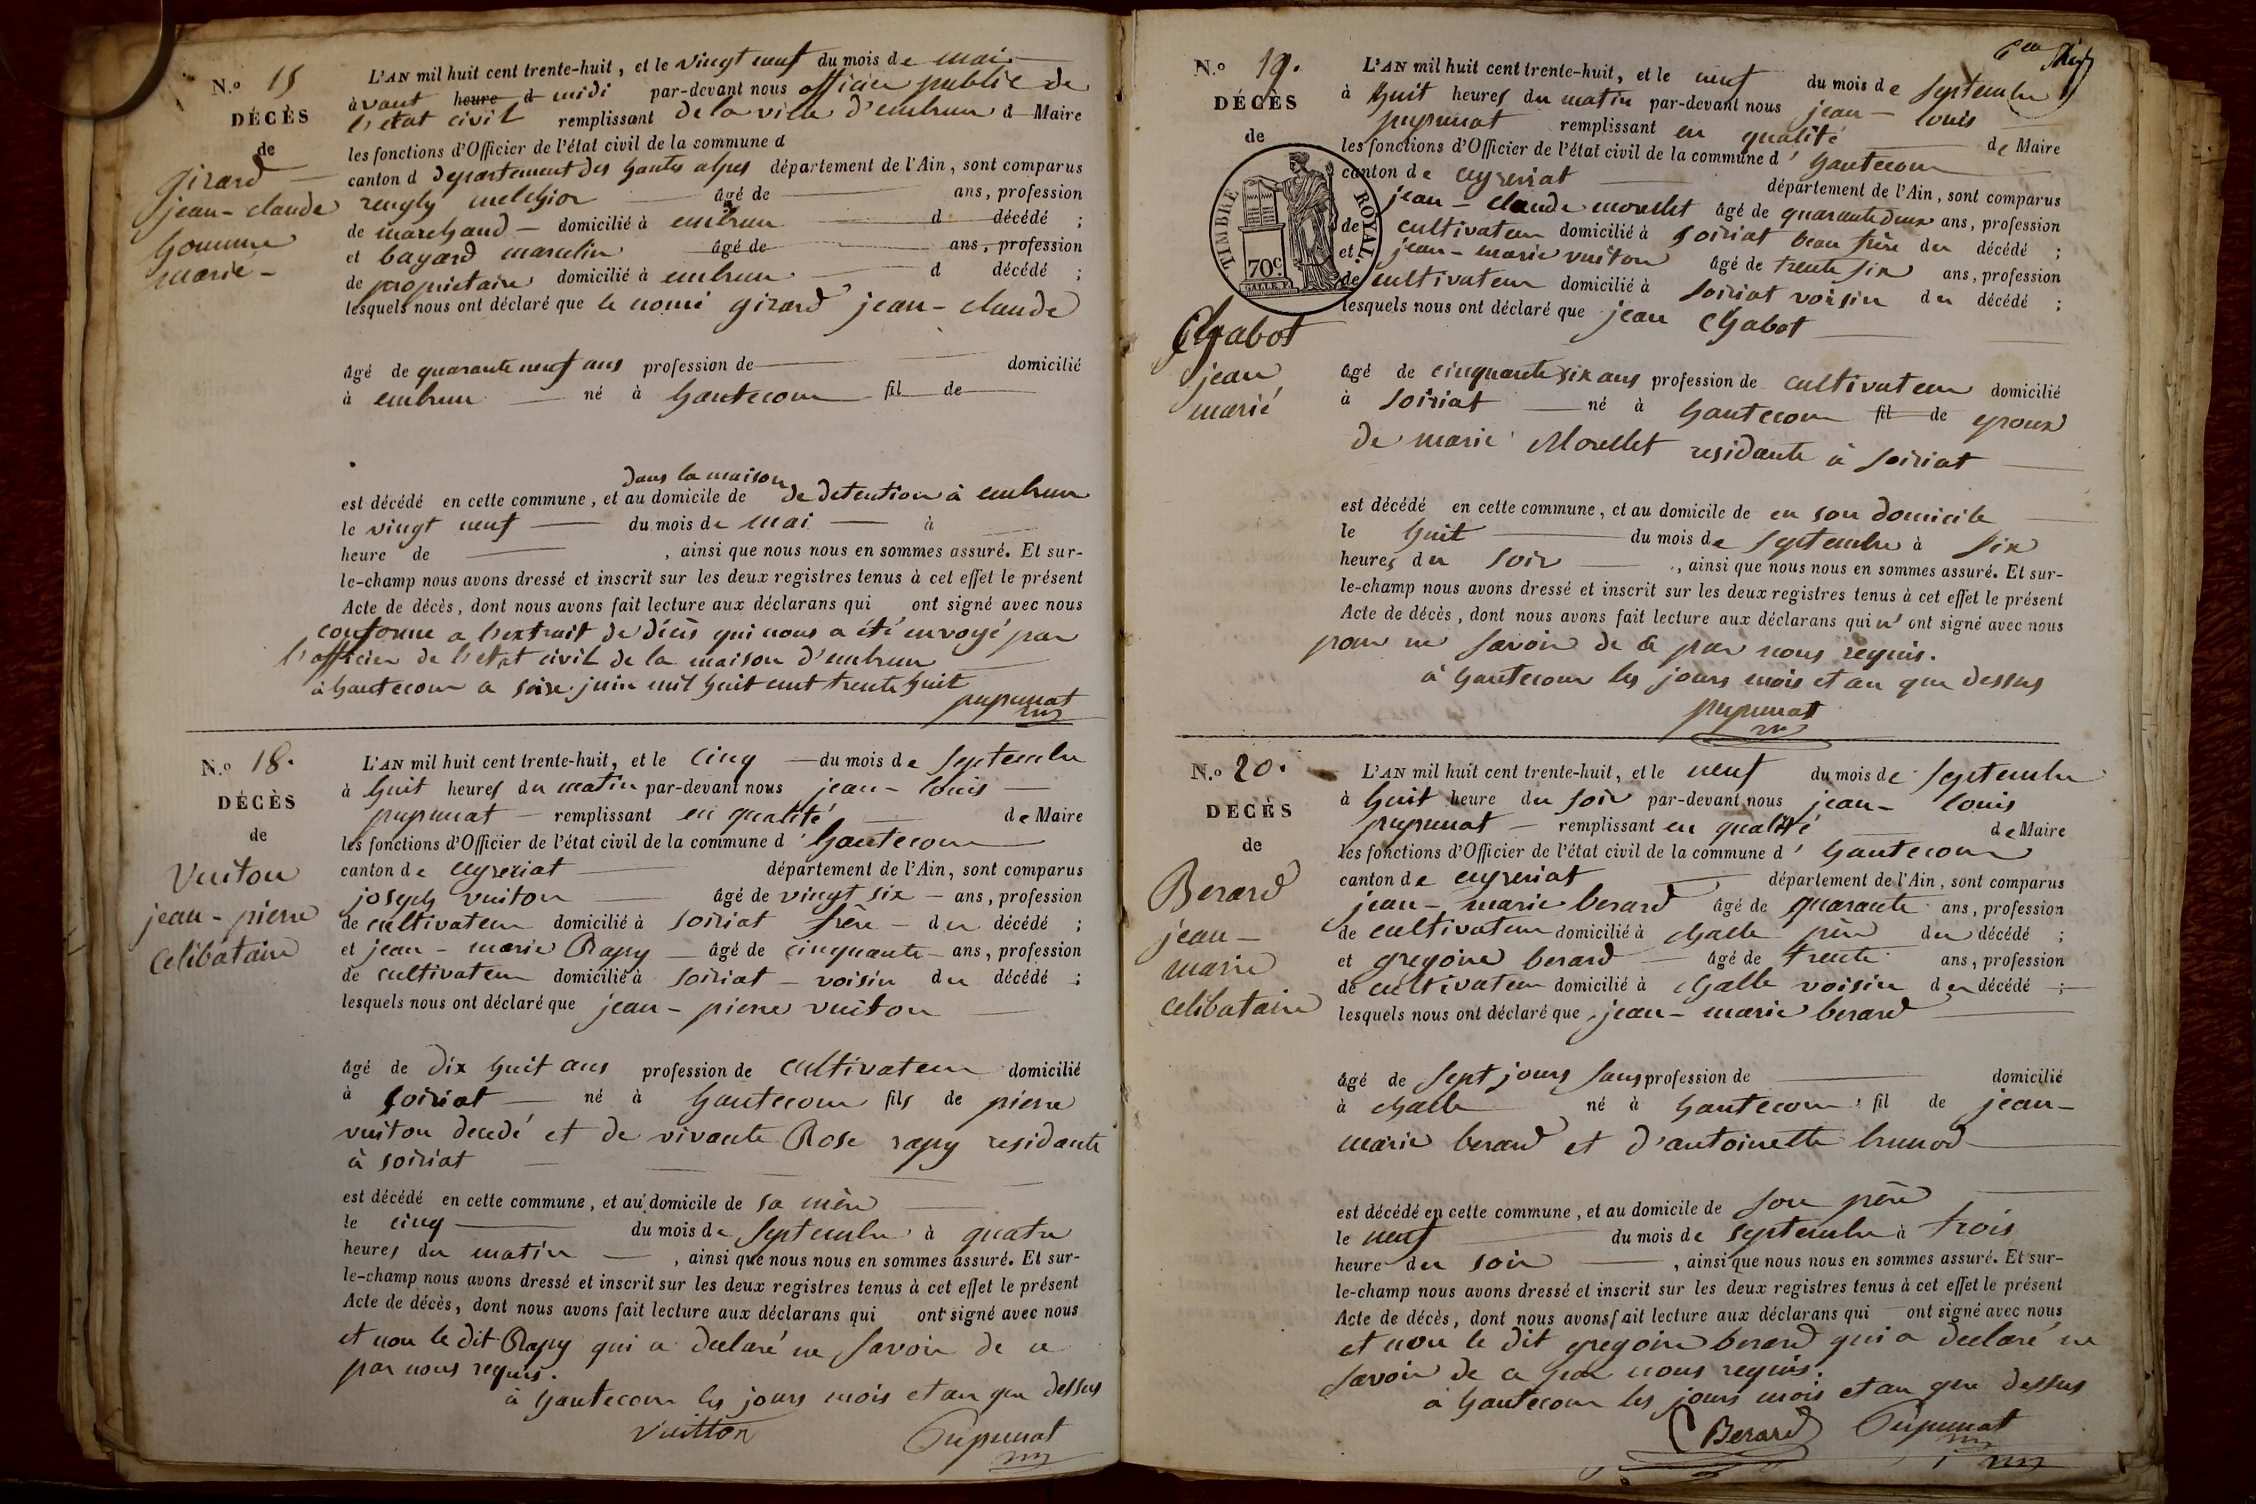 N.o 15
DÉCÈS
de
girard
jean-claude
homme
marié
L'AN mil huit cent trente-huit, et le vingt neuf du mois de mai
avant heure d midi par-devant nous officier public de
l'etat civil remplissant de la ville d'embrun d Maire
les fonctions d'Officier de l'état civil de la commune d
canton d departement des hautes alpes département de l'Ain, sont comparus
rengly melchior âgé de ans, profession
de marchand domicilié à embrun d décédé ;
et bayard marcelin âgé de ans, profession
de propriétaire domicilié à embrun d décédé ;
lesquels nous ont déclaré que le nomé girard jean-claude
âgé de quarante neuf ans profession de domicilié
à embrun né à hautecour fil de
dans la maison
est décédé en cette commune, et au domicile de de detention à embrun
le vingt neuf du mois de mai à
heure de , ainsi que nous nous en sommes assuré. Et sur-
le-champ nous avons dressé et inscrit sur les deux registres tenus à cet effet le présent
Acte de décès, dont nous avons fait lecture aux déclarans qui ont signé avec nous
conforme a l'extrait de décès qui nous a été envoyé par
l'officier de l'etat civil de la maison d'embrun
à hautecour a seize juin mil huit cent trente huit
pupunat
N.o 18.
DÉCÈS
de
Vuiton
jean-pierre
celibataire
L'AN mil huit cent trente-huit, et le cinq du mois de septembre
à huit heures du matin par-devant nous jean-louis
pupunat remplissant en qualité de Maire
les fonctions d'Officier de l'état civil de la commune d'hautecour
canton de ceyzeriat département de l'Ain, sont comparus
joseph vuiton âgé de vingt six ans, profession
de cultivateur domicilié à soiriat frère du décédé ;
et jean-marie Rapy âgé de cinquante ans, profession
de cultivateur domicilié à soiriat voisin du décédé ;
lesquels nous ont déclaré que jean-pierre vuiton
âgé de dix huit ans profession de cultivateur domicilié
à soiriat né à hautecour fils de pierre
vuiton decedé et de vivante Rose rapy residante
à soiriat
est décédé en cette commune, et au domicile de sa mère
le cinq du mois de septembre à quatre
heures du matin , ainsi que nous nous en sommes assuré. Et sur-
le-champ nous avons dressé et inscrit sur les deux registres tenus à cet effet le présent
Acte de décès, dont nous avons fait lecture aux déclarans qui ont signé avec nous
et non le dit Rapy qui a declaré ne savoir de ce
par nous requis.
à hautecour les jours mois et an que dessus
Vuitton Pupunat
N.o 19.
DÉCÈS
de
TIMBRE ROYAL
70c
Chabot
jean
marié
L'AN mil huit cent trente-huit, et le neuf du mois de septembre
à huit heures du matin par-devant nous jean-louis
pupunat remplissant en qualité de Maire
les fonctions d'Officier de l'état civil de la commune d'hautecour
canton de ceyzeriat département de l'Ain, sont comparus
jean-claude morellet âgé de quarante deux ans, profession
de cultivateur domicilié à soiriat beau frère du décédé ;
et jean-marie vuiton âgé de trente six ans, profession
de cultivateur domicilié à soiriat voisin du décédé ;
lesquels nous ont déclaré que jean Chabot
âgé de cinquante six ans profession de cultivateur domicilié
à soiriat né à hautecour fil de epoux
de marie Morellet residante à soiriat
est décédé en cette commune, et au domicile de en son domicile
le huit du mois de septembre à six
heures du soir , ainsi que nous nous en sommes assuré. Et sur-
le-champ nous avons dressé et inscrit sur les deux registres tenus à cet effet le présent
Acte de décès, dont nous avons fait lecture aux déclarans qui n'ont signé avec nous
pour ne savoir de ce par nous requis.
à hautecour les jours mois et an que dessus
pupunat
N.o 20.
DECÈS
de
Berard
jean-
marie
celibataire
L'AN mil huit cent trente-huit, et le neuf du mois de septembre
à huit heure du soir par-devant nous jean-louis
pupunat remplissant en qualité de Maire
les fonctions d'Officier de l'état civil de la commune d'hautecour
canton de ceyzeriat département de l'Ain, sont comparus
jean-marie berard âgé de quarante ans, profession
de cultivateur domicilié à challe père du décédé ;
et gregoire berard âgé de trente ans, profession
de cultivateur domicilié à challe voisin du décédé ;
lesquels nous ont déclaré que jean-marie berard
âgé de sept jours sans profession de domicilié
à challe né à hautecour fil de jean-
marie berard et d'antoinette brunod
est décédé en cette commune, et au domicile de son père
le neuf du mois de septembre à trois
heure du soir , ainsi que nous nous en sommes assuré. Et sur-
le-champ nous avons dressé et inscrit sur les deux registres tenus à cet effet le présent
Acte de décès, dont nous avons fait lecture aux déclarans qui ont signé avec nous
et non le dit gregoire berard qui a declaré ne
savoir de ce par nous requis.
à hautecour les jours mois et an que dessus
Berard Pupunat